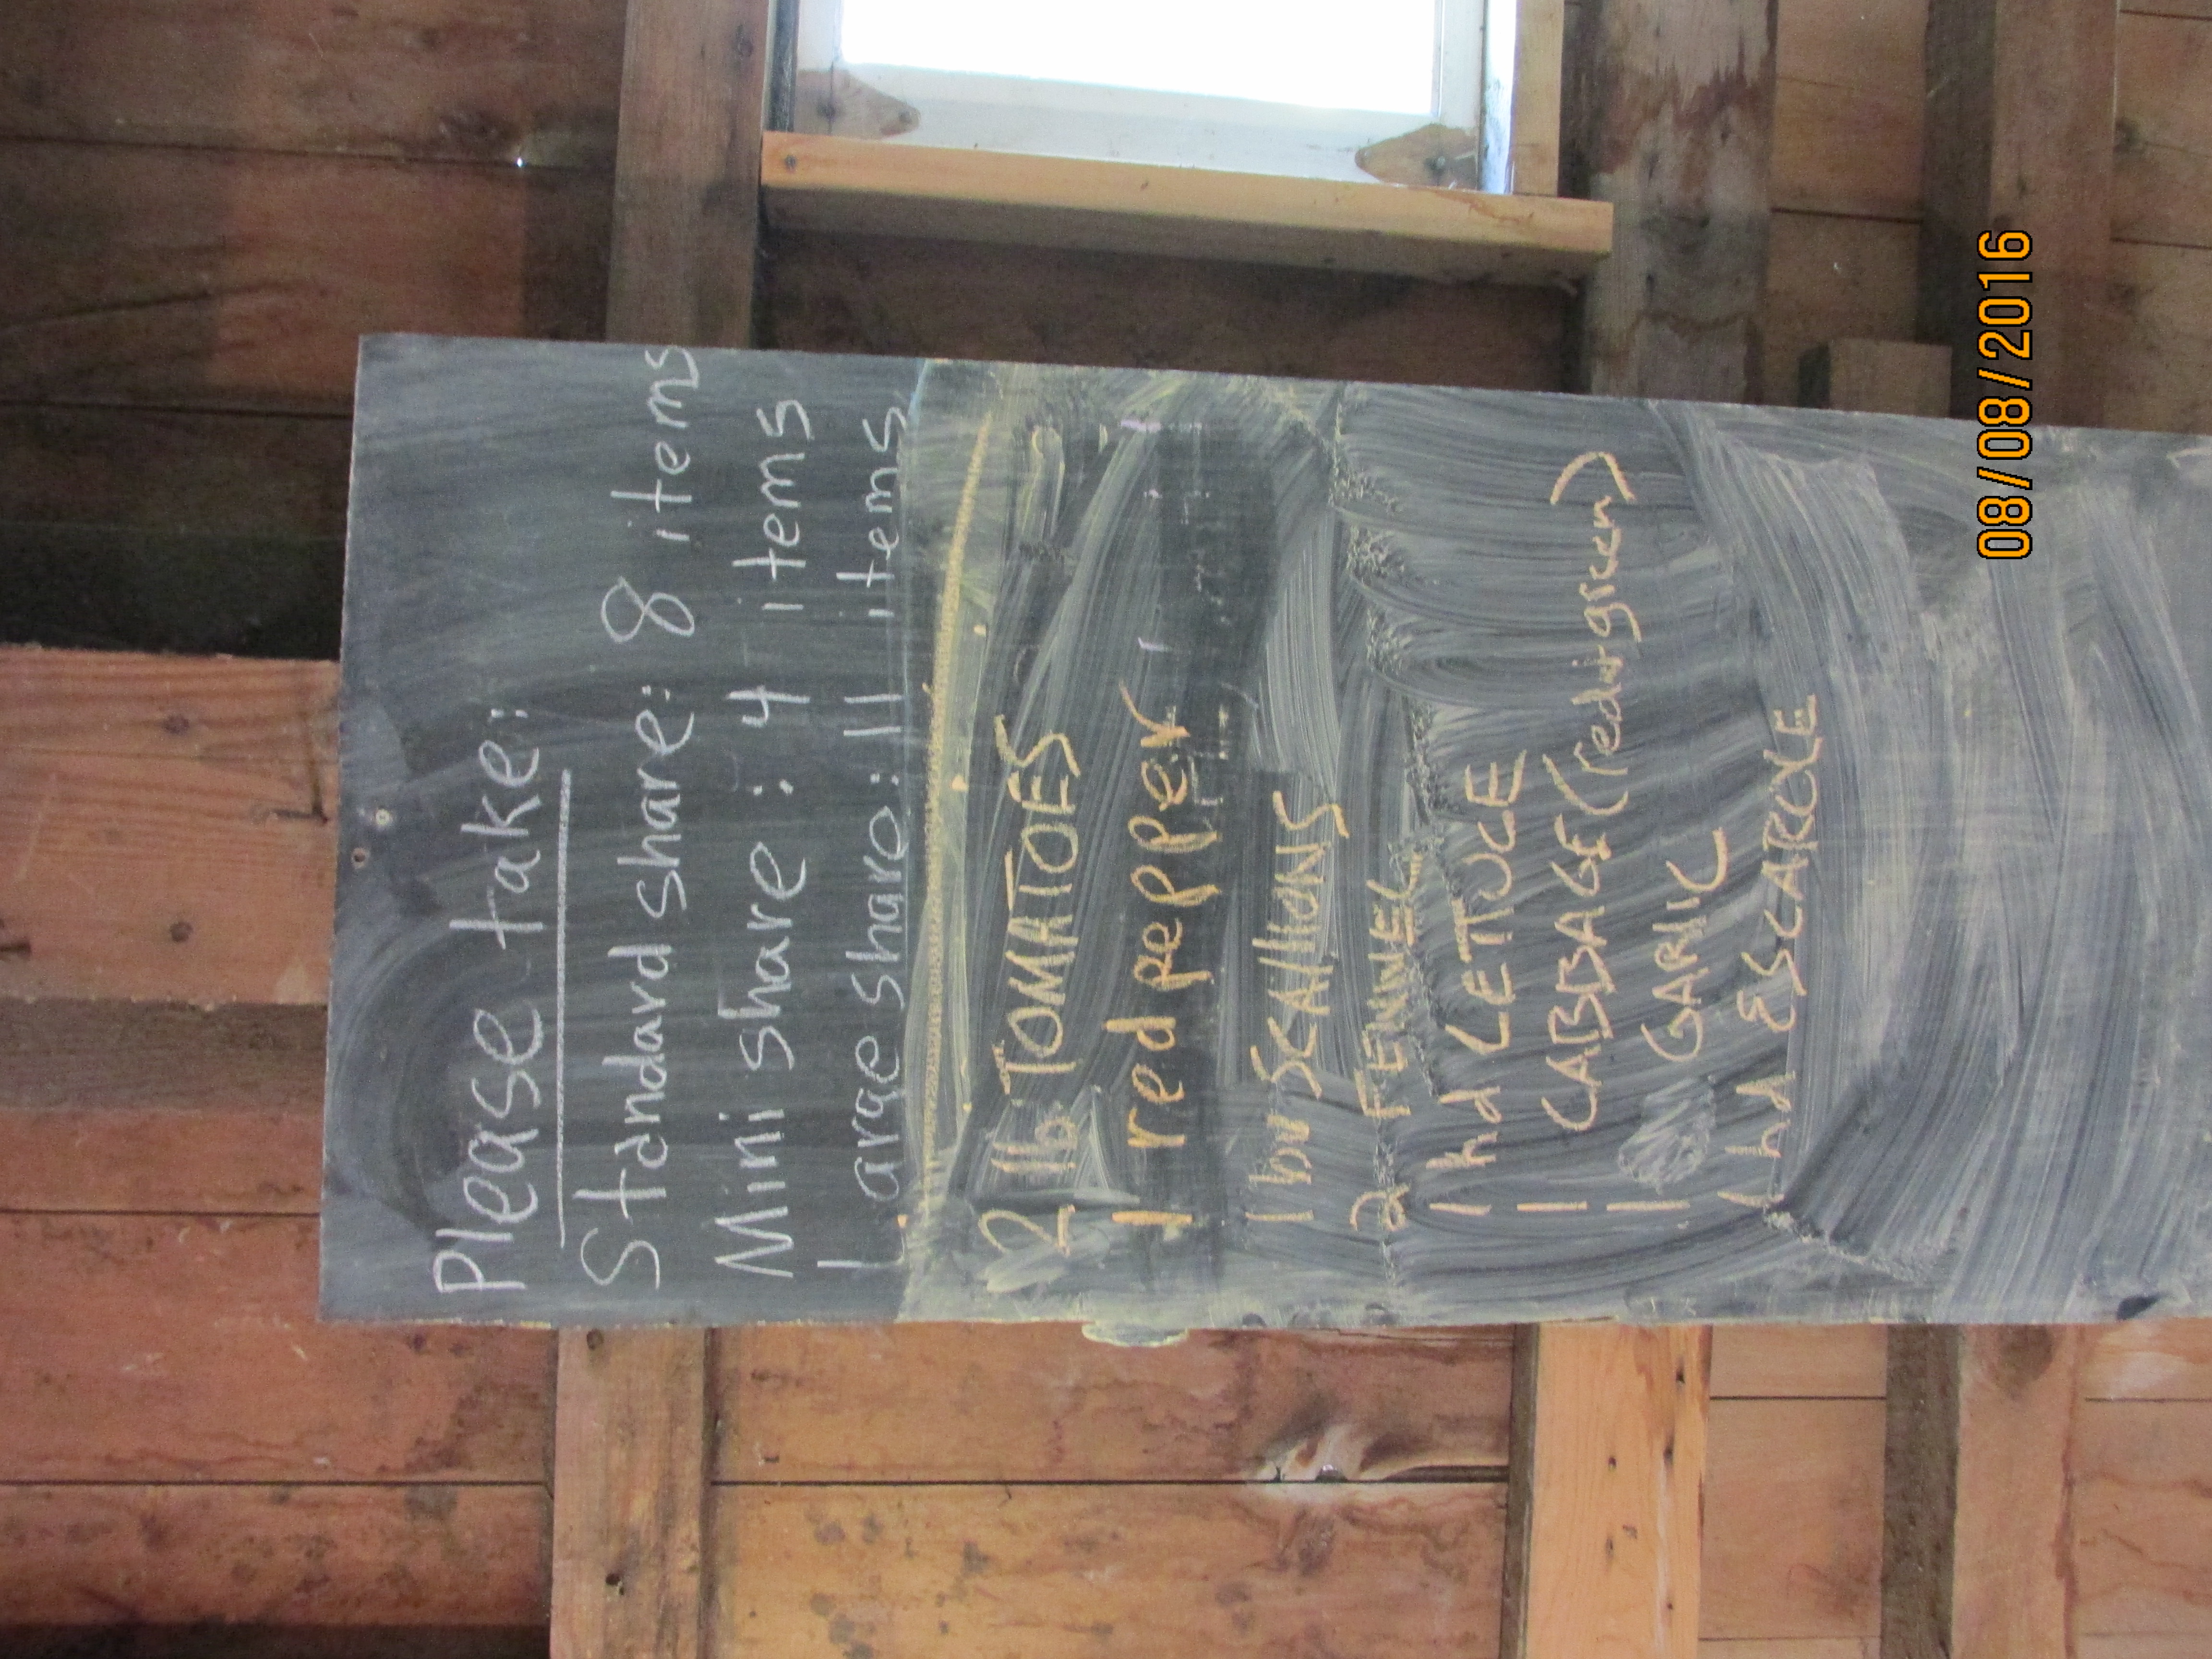 Please take:
Standard share: 8 items
Mini share: 4 items
Large share: 11 items
2 lb TOMATOES
1 red pepper
1 bu SCAllIONS
2 FENNEL
1 hd LETTUCE
1 CABBAGE (red or green)
1 GARlIC
1 hd ESCAROLE
08/08/2016